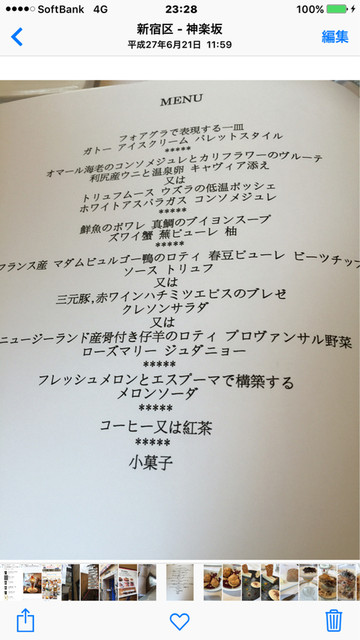 SoftBank 4G 23:28 100%
新宿区 - 神楽坂
平成27年6月21日 11:59
編集
MENU
フォアグラで表現する一皿
ガトー アイスクリーム パレットスタイル
*****
オマール海老のコンソメジュレとカリフラワーのヴルーテ
利尻産ウニと温泉卵 キャヴィア添え
又は
トリュフムース ウズラの低温ポッシェ
ホワイトアスパラガス コンソメジュレ
*****
鮮魚のポワレ 真鯛のブイヨンスープ
ズワイ蟹 蕪ピューレ 柚
*****
フランス産 マダムビュルゴー鴨のロティ 春豆ピューレ ビーツチップ
ソース トリュフ
又は
三元豚,赤ワインハチミツエピスのブレゼ
クレソンサラダ
又は
ニュージーランド産骨付き仔羊のロティ プロヴァンサル野菜
ローズマリー ジュダニョー
*****
フレッシュメロンとエスプーマで構築する
メロンソーダ
*****
コーヒー又は紅茶
*****
小菓子